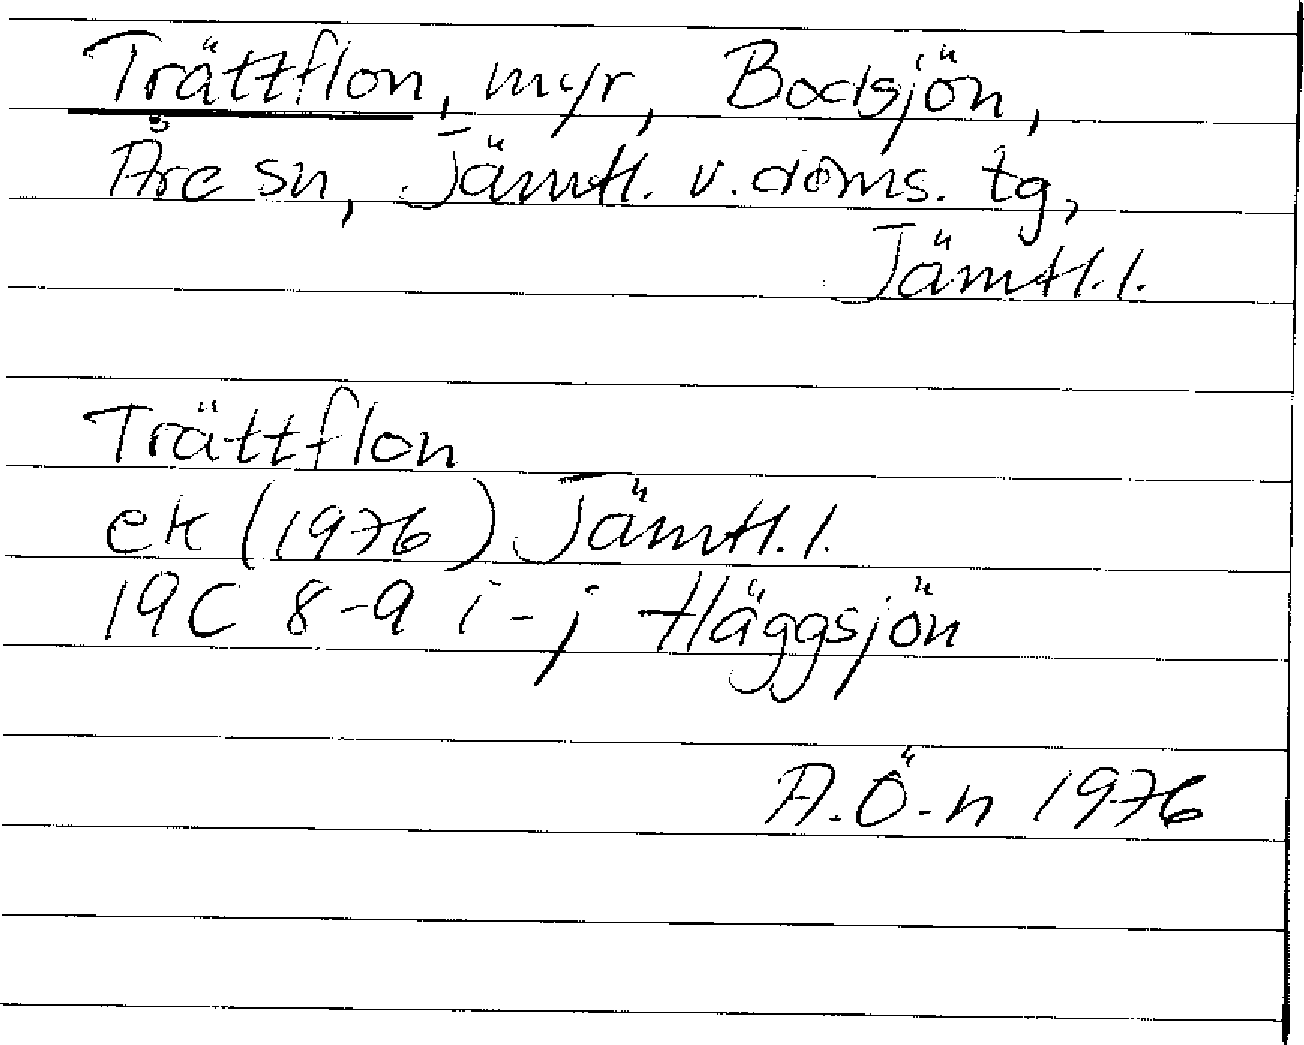 Trättflon, myr, Bodsjön,
Åre sn, Jämtl. v. doms. tg,
Jämtl. l.
Trättflon
ek (1976) Jämtl. l.
19C 8-9 i-j Häggsjön
A. Ö-n 1976